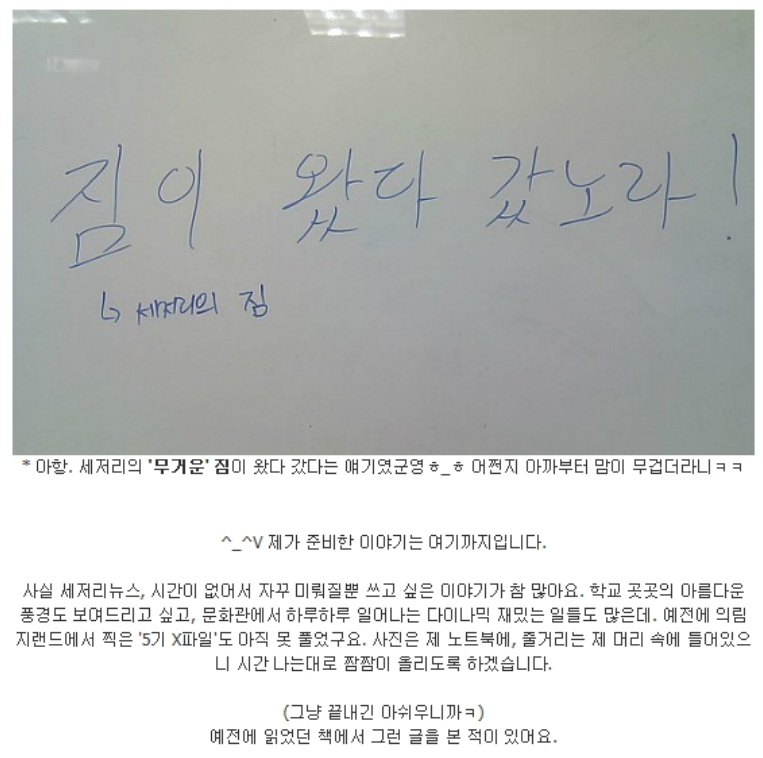 짐이 왔다 갔노라!
↳ 세저리의 짐
* 아항. 세저리의 '무거운' 짐이 왔다 갔다는 얘기였군영ㅎ_ㅎ 어쩐지 아까부터 맘이 무겁더라니ㅋㅋ
^_^V 제가 준비한 이야기는 여기까지입니다.
사실 세저리뉴스, 시간이 없어서 자꾸 미뤄질뿐 쓰고 싶은 이야기가 참 많아요. 학교 곳곳의 아름다운
풍경도 보여드리고 싶고, 문화관에서 하루하루 일어나는 다이나믹 재밌는 일들도 많은데. 예전에 의림
지랜드에서 찍은 '5기 X파일'도 아직 못 풀었구요. 사진은 제 노트북에, 줄거리는 제 머리 속에 들어있으
니 시간 나는대로 짬짬이 올리도록 하겠습니다.
(그냥 끝내긴 아쉬우니까ㅋ)
예전에 읽었던 책에서 그런 글을 본 적이 있어요.